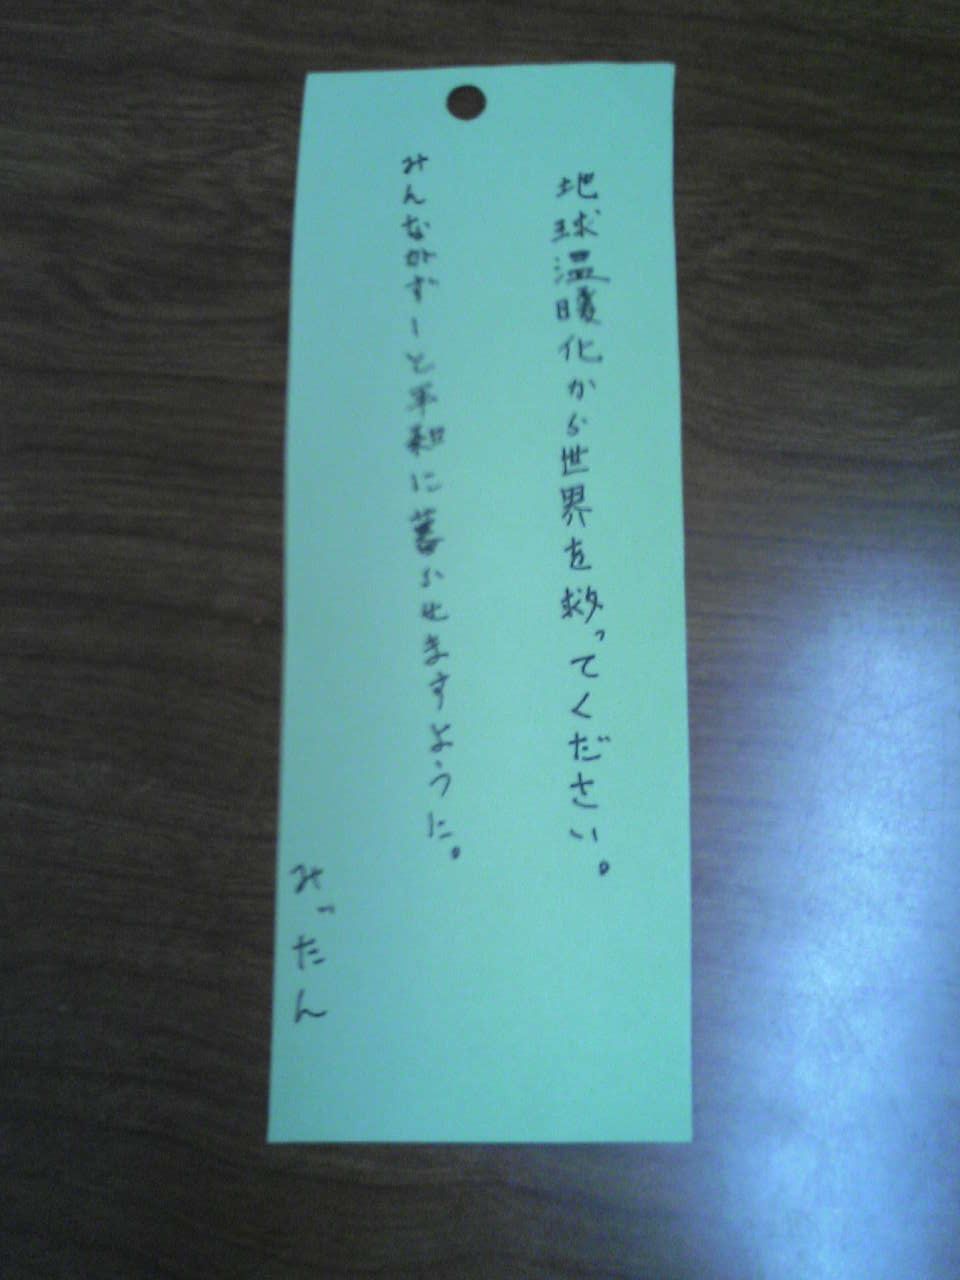 地球温暖化から世界を救ってください。
みんながずーと平和に暮らせますように。
みったん